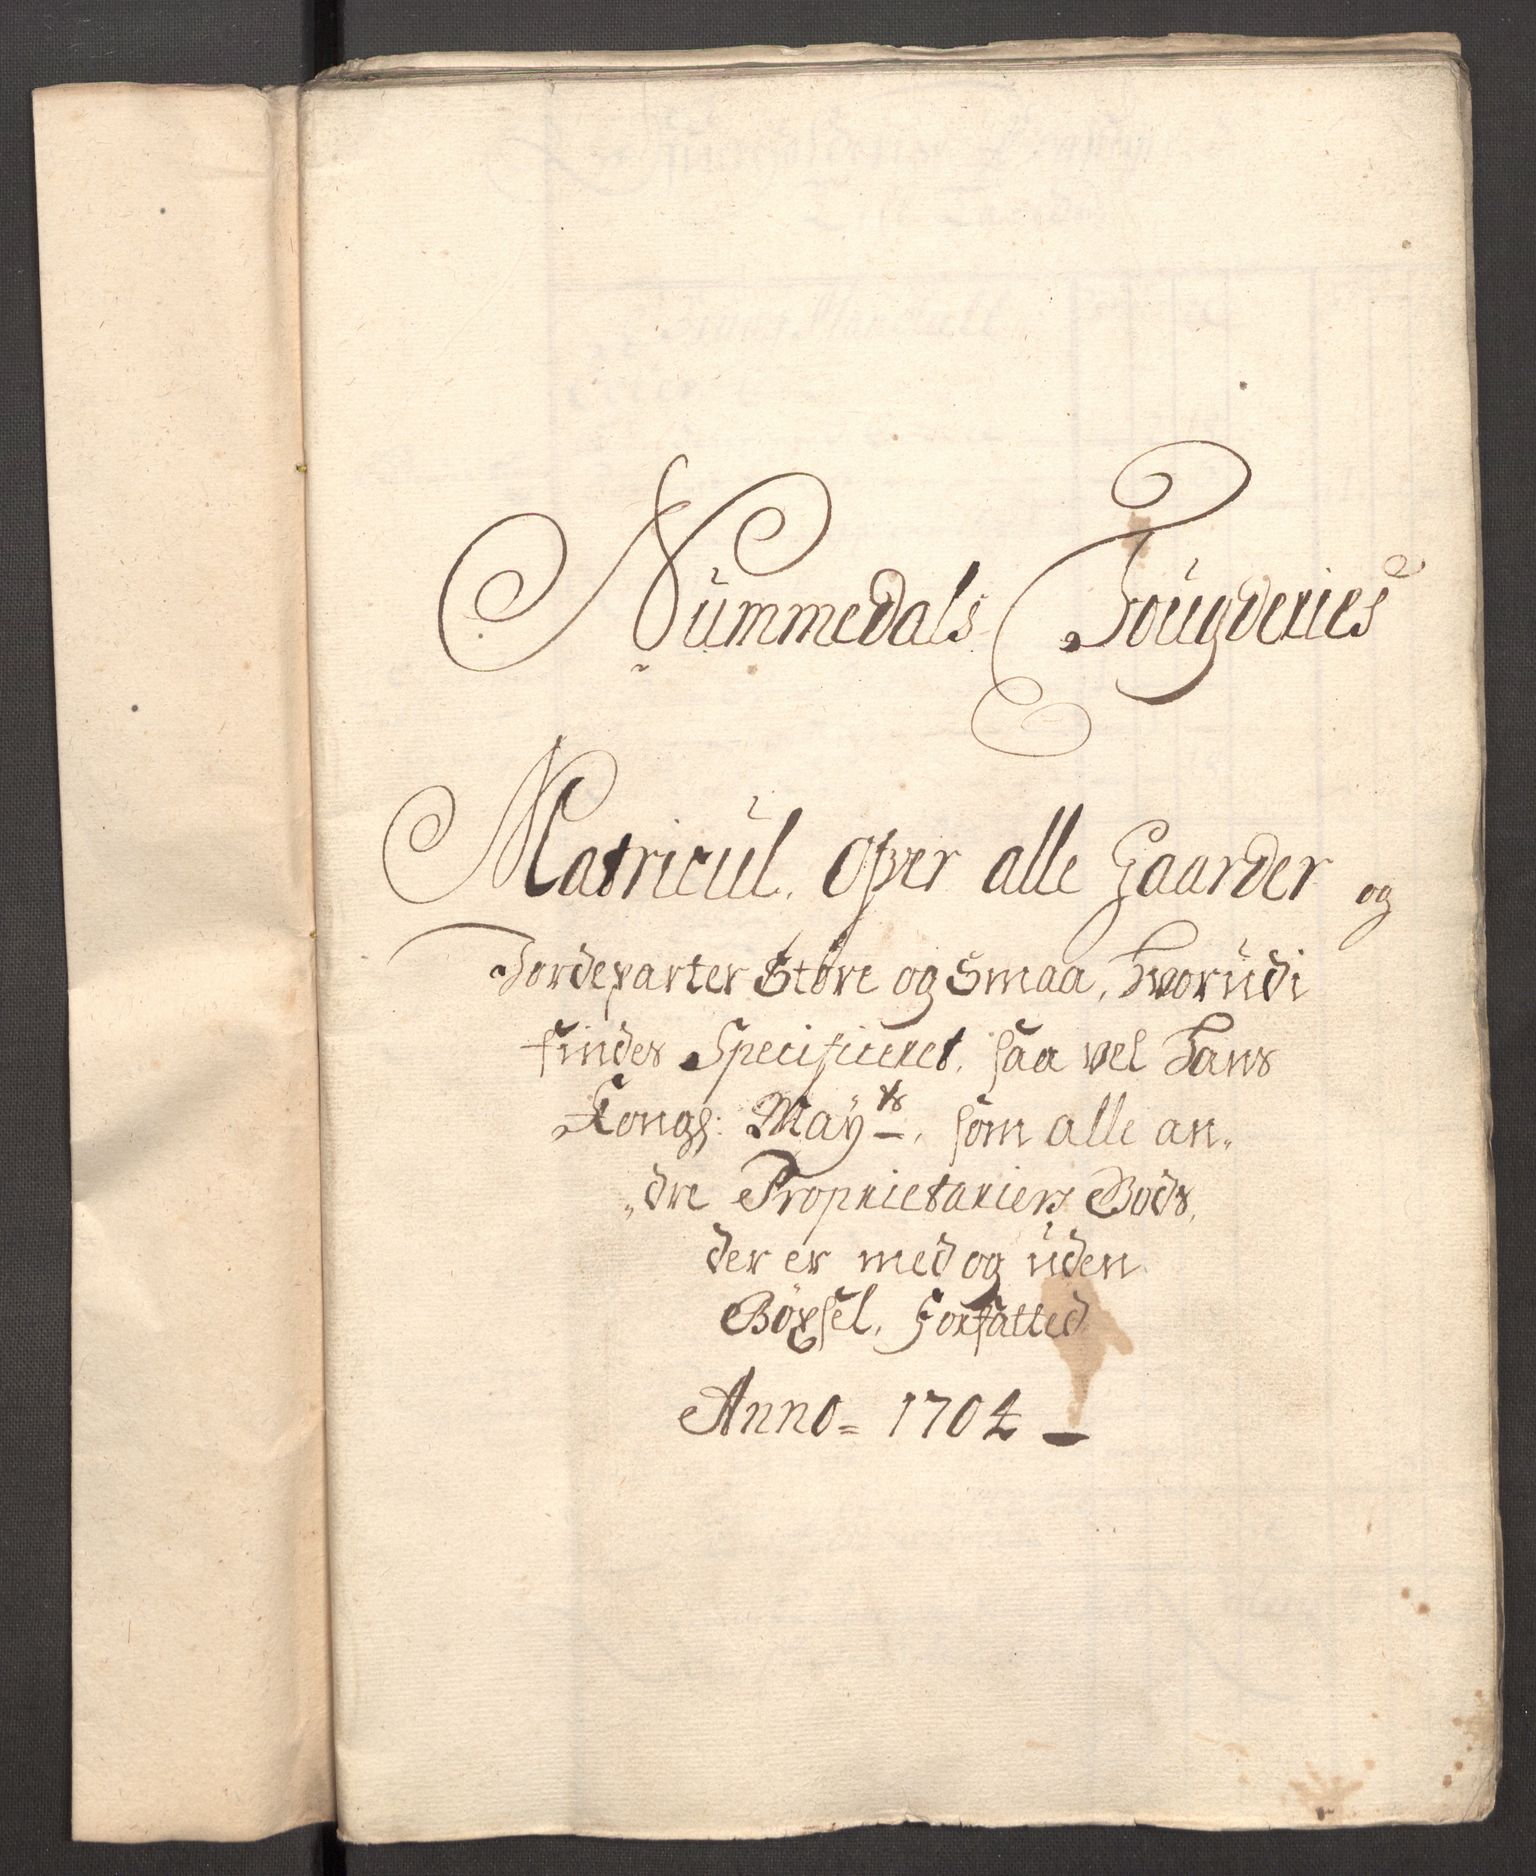 Nummedals Fougderies
Matricul. over alle Gaarder og
Jordeparter Store og Smaa, hvorudi
findes Specificeret, saa vel Hans
Kongl: Mayts, som alle an„
„dre Proprietariers Gods,
der er med og uden
Bøxsel, Forfatted
Anno = 1704 –